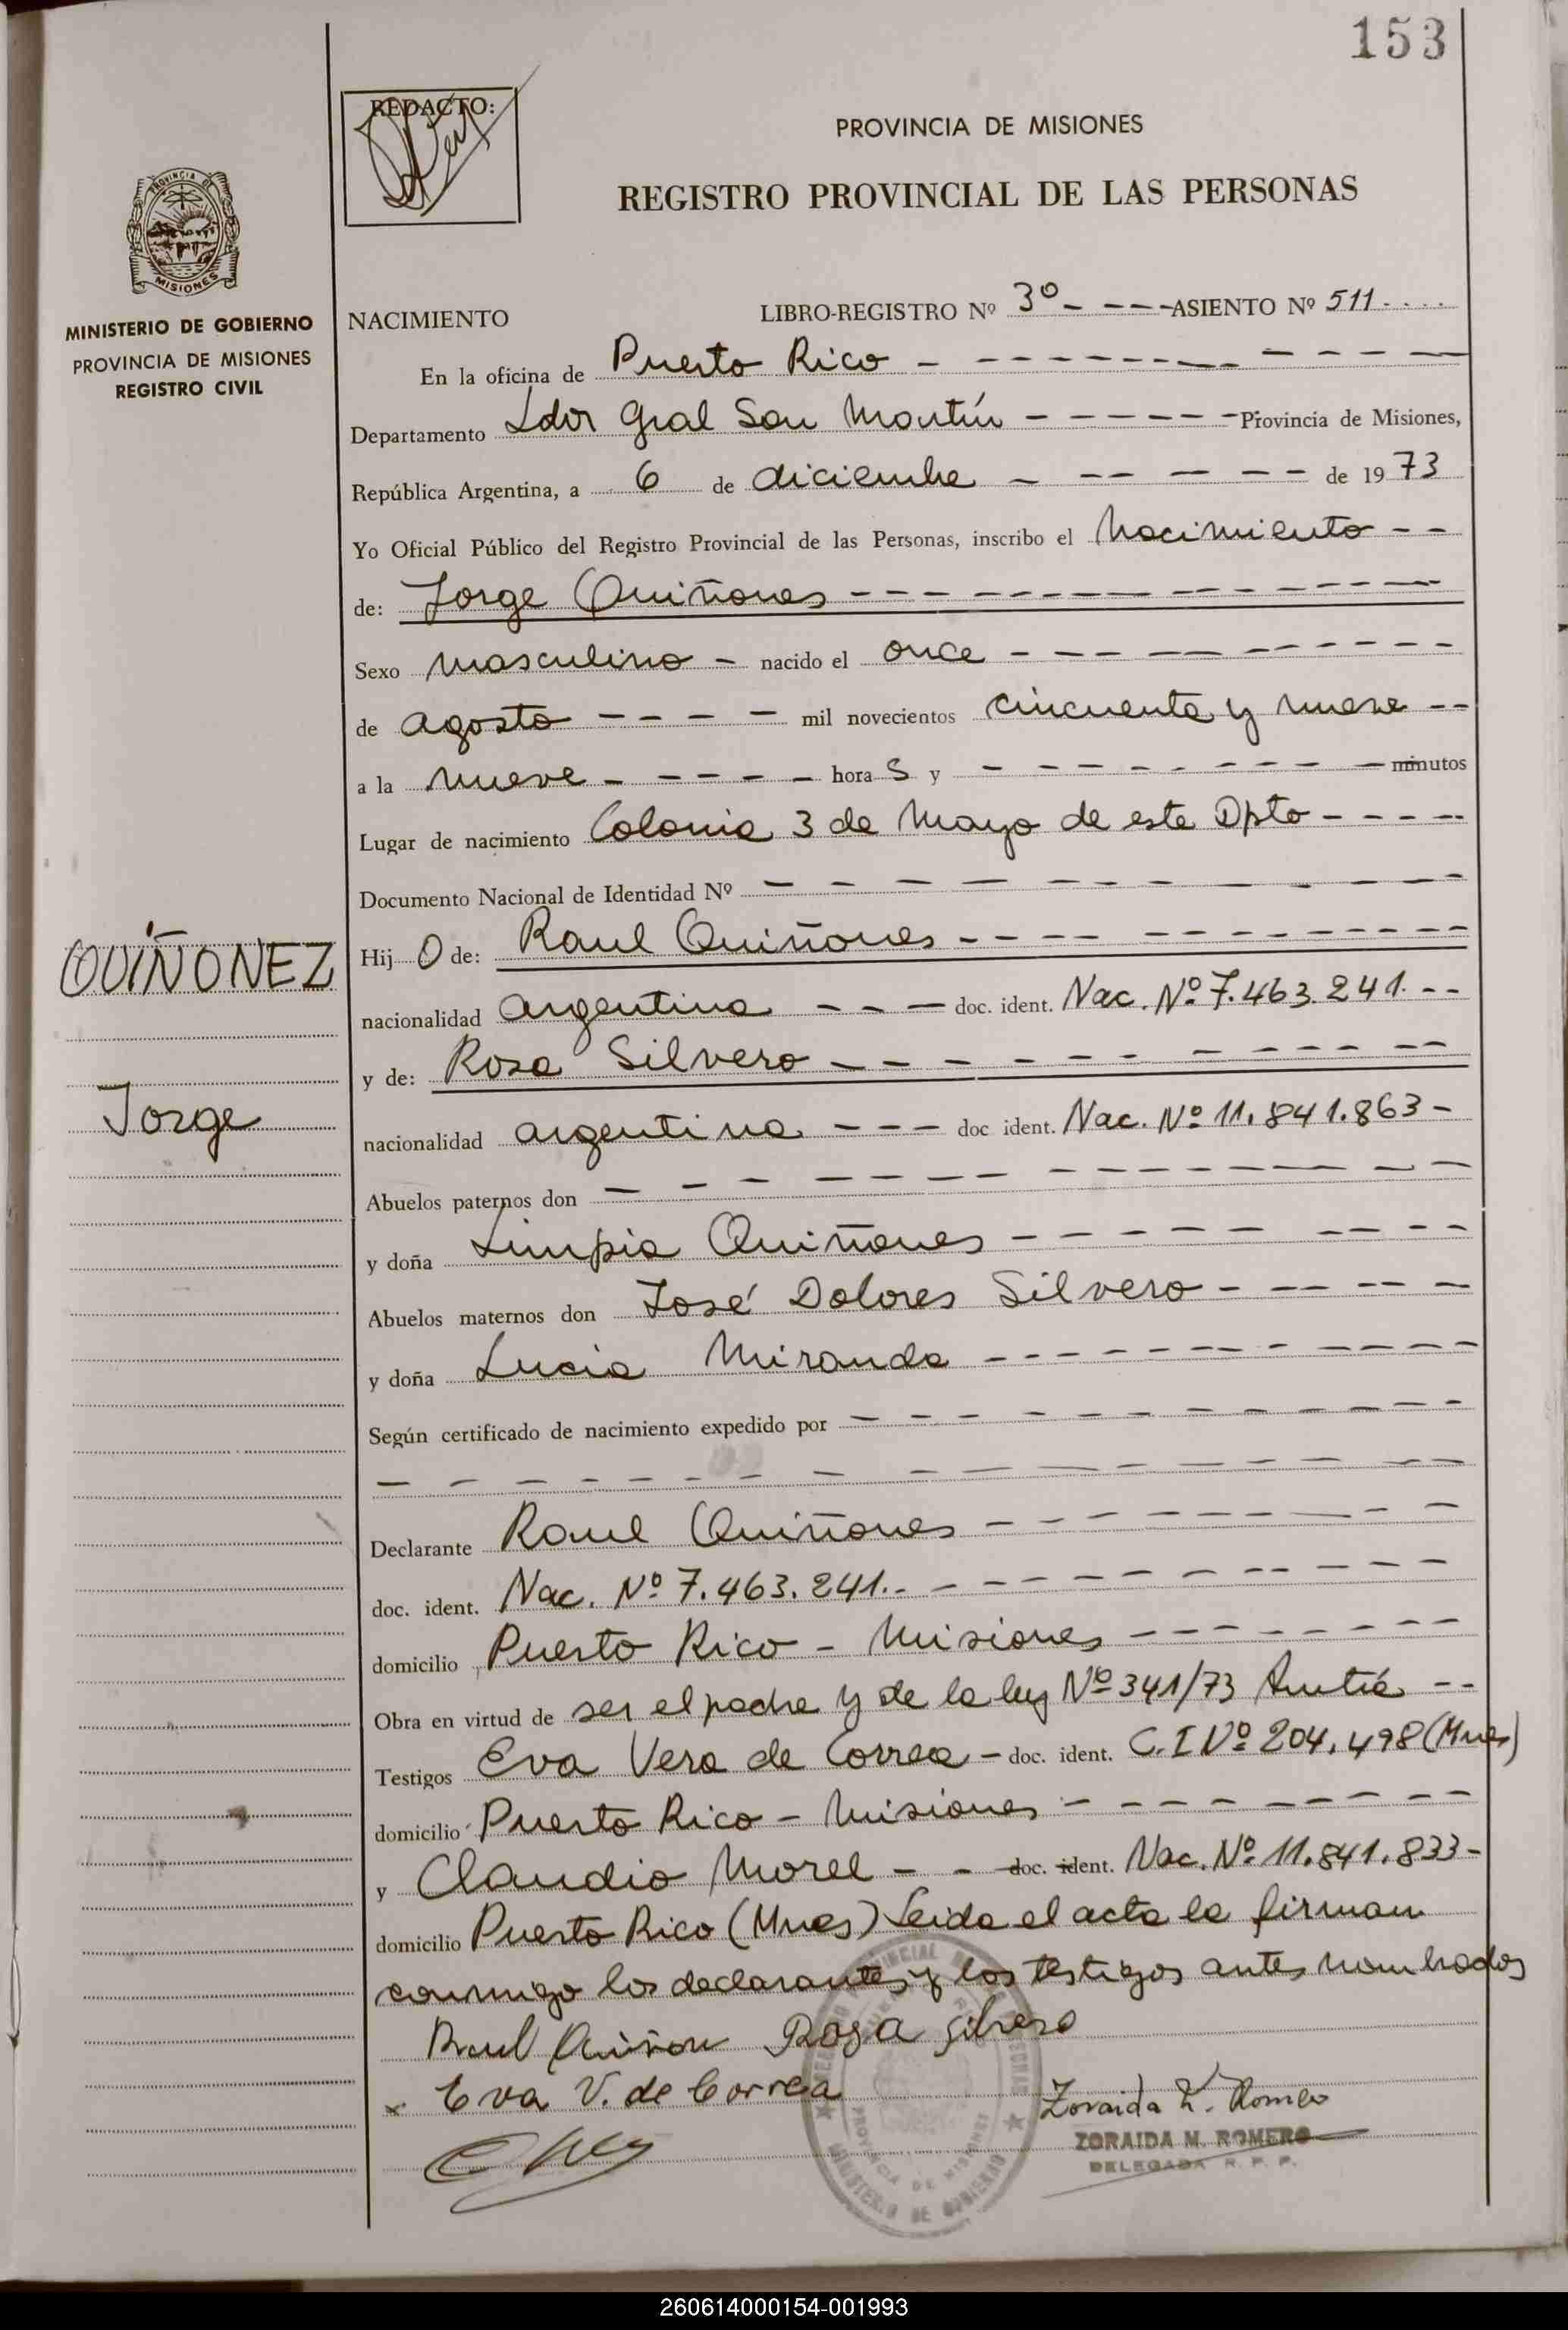 153
REDACTO:
PROVINCIA DE MISIONES
REGISTRO PROVINCIAL DE LAS PERSONAS
PROVINCIA DE
MISIONES
MINISTERIO DE GOBIERNO
PROVINCIA DE MISIONES
REGISTRO CIVIL
NACIMIENTO LIBRO-REGISTRO Nº 3º - - - - ASIENTO Nº 511
En la oficina de Puerto Rico
Departamento Ldor Gral San Martín Provincia de Misiones,
República Argentina, a 6 de diciembre de 1973
Yo Oficial Público del Registro Provincial de las Personas, inscribo el Nacimiento
de: Jorge Quiñones
Sexo masculino nacido el once
de agosto mil novecientos cincuenta y nueve
a la nueve hora s y minutos
Lugar de nacimiento Colonia 3 de Mayo de este Dpto
Documento Nacional de Identidad Nº
QUIÑONEZ
Jorge
Hij o de: Raul Quiñones
nacionalidad argentina doc. ident. Nac. Nº 7.463.241.
y de: Rosa Silvero
nacionalidad argentina doc ident. Nac. Nº 11.841.863
Abuelos paternos don
y doña Limpia Quiñones
Abuelos maternos don José Dolores Silvero
y doña Lucia Miranda
Según certificado de nacimiento expedido por
Declarante Raul Quiñones
doc. ident. Nac. Nº 7.463.241.
domicilio Puerto Rico - Misiones
Obra en virtud de ser el padre y de la ley Nº 341/73
Testigos Eva Vera de Correa doc. ident. C.I Nº 204.498 (Mnes)
domicilio Puerto Rico - Misiones
y Claudio Morel doc. ident. Nac. Nº 11.841.833
domicilio Puerto Rico (Mnes) Leida el acta la firman
conmigo los declarantes y los testigos antes nombrados
Raul Quiñon Rosa Silvero
x Eva V. de Correa
Zoraida Romero
ZORAIDA M. ROMERO
DELEGADA R. P. P.
PROVINCIA DE MISIONES
MINISTERIO DE GOBIERNO
260614000154-001993